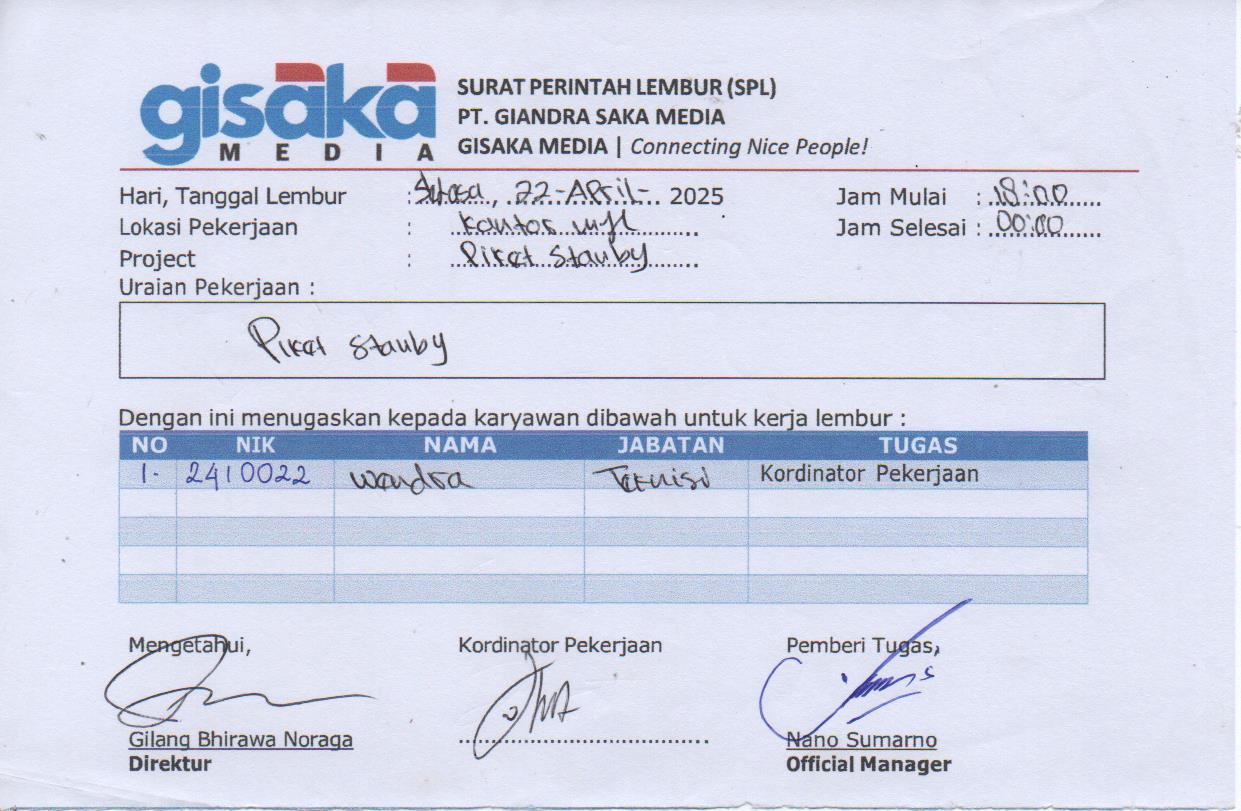 gisaka
MEDIA
SURAT PERINTAH LEMBUR (SPL)
PT. GIANDRA SAKA MEDIA
GISAKA MEDIA | Connecting Nice People!
Hari, Tanggal Lembur : Selasa, 22-April- 2025 Jam Mulai : 18:00
Lokasi Pekerjaan : Kantor Jam Selesai : 00:00
Project : Piket Standby
Uraian Pekerjaan :
Piket Standby
Dengan ini menugaskan kepada karyawan dibawah untuk kerja lembur :
NO NIK NAMA JABATAN TUGAS
1. 2410022 Wandra Teknisi Kordinator Pekerjaan
Mengetahui, Kordinator Pekerjaan Pemberi Tugas,
Gilang Bhirawa Noraga Nano Sumarno
Direktur Official Manager